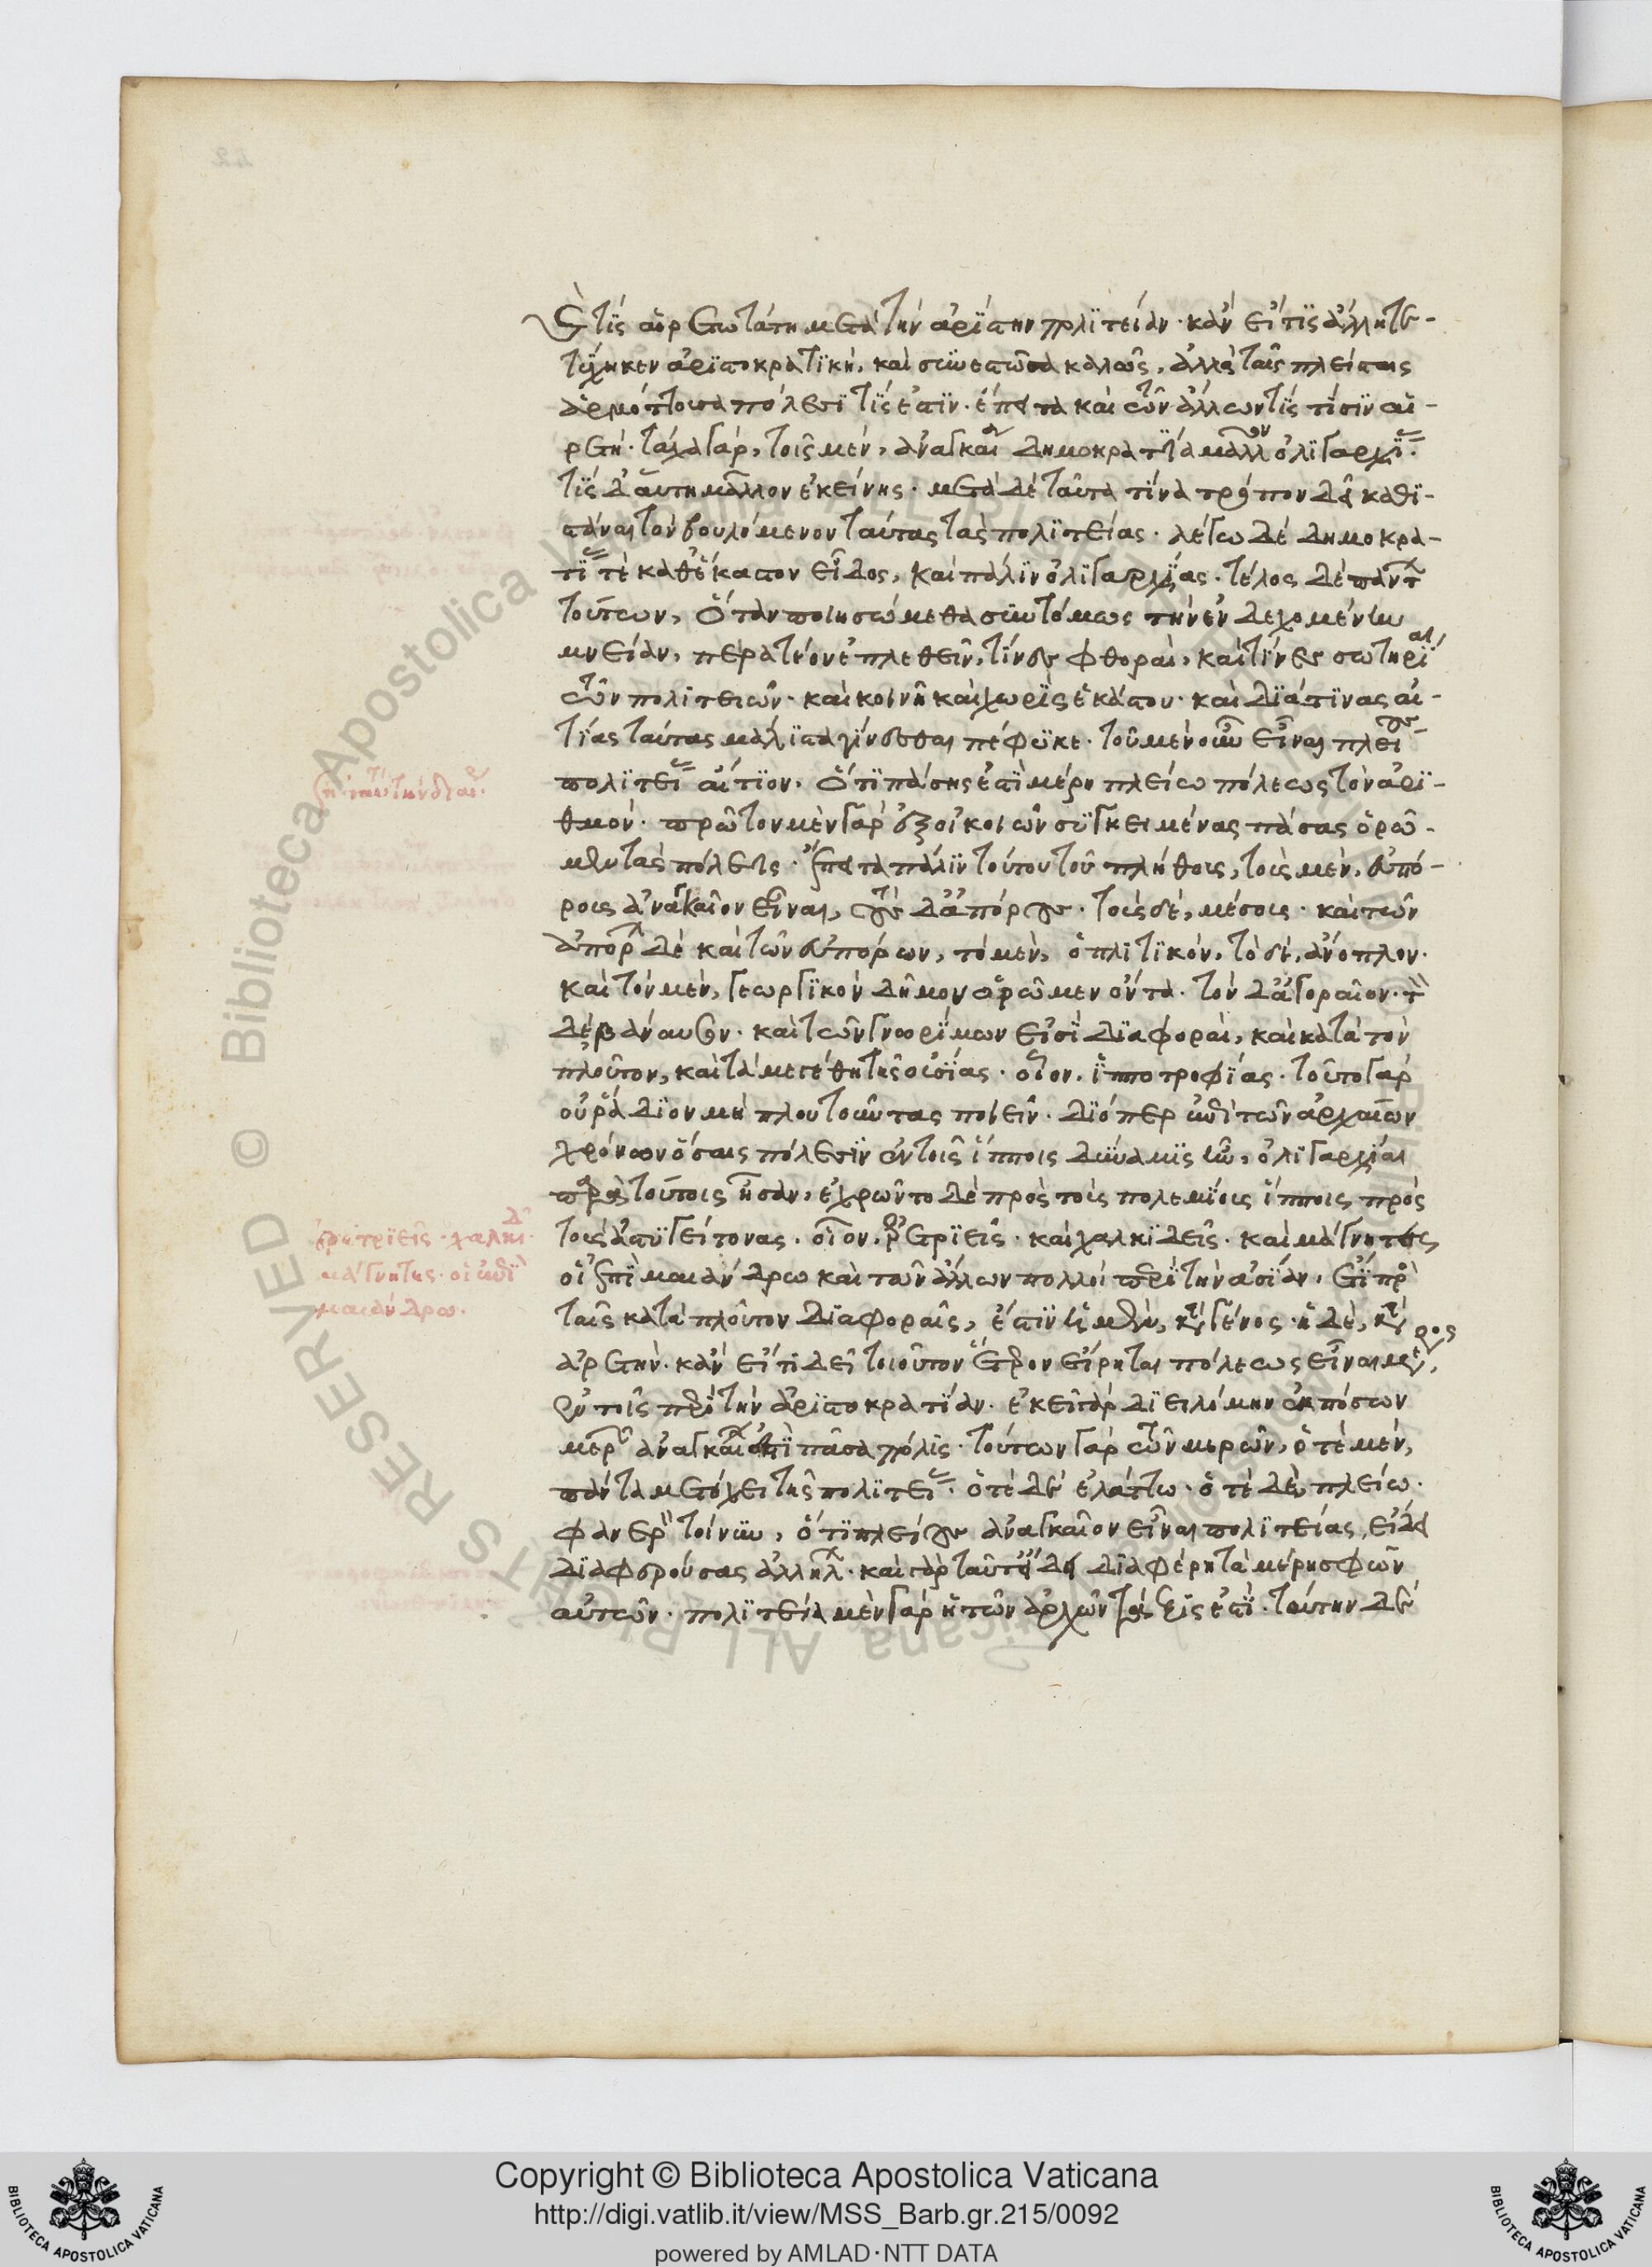 καὶ τίς αἱρετωτάτη μετὰ τὴν ἀρίστην πολιτείαν· κἂν εἴ τις ἄλλη τε-
τύχηκεν ἀριστοκρατικὴ, καὶ συνεστῶσα καλῶς, ἀλλὰ ταῖς πλείσταις
ἁρμόττουσα πόλεσι τίς ἐστιν. ἔπειτα καὶ τῶν ἄλλων τίς τίσιν αἱ-
ρετή· τάχα γὰρ, τοῖς μὲν, ἀναγκαία δημοκρατία μᾶλλον ὀλιγαρχίας·
τίς δ' αὕτη μᾶλλον ἐκείνης· μετὰ δὲ ταῦτα τίνα τρόπον δεῖ καθι-
στάναι τὸν βουλόμενον ταύτας τὰς πολιτείας· λέγω δὲ δημοκρα-
τίας τε καθ' ἕκαστον εἶδος, καὶ πάλιν ὀλιγαρχίας. τέλος δὲ πάντων
τούτων, ὅταν ποιησώμεθα συντόμως τὴν ἐνδεχομένην
μνείαν, πειρατέον ἐπελθεῖν, τίνες φθοραὶ, καὶ τίνες σωτηρίαι
τῶν πολιτειῶν· καὶ κοινῇ καὶ χωρὶς ἑκάστου· καὶ διὰ τίνας αἰ-
τίας ταύτας μάλιστα γίνεσθαι πέφυκε. τοῦ μὲν οὖν εἶναι πλείους
πολιτείας αἴτιον, ὅτι πάσης ἐστὶ μέρη πλείω πόλεως τὸν ἀρι-
θμόν. πρῶτον μὲν γὰρ ἐξ οἰκοιῶν συγκειμένας πάσας ὁρῶ-
μεν τὰς πόλεις· ἔπειτα πάλιν τούτου τοῦ πλήθους, τοὺς μὲν, εὐπό-
ρους ἀναγκαῖον εἶναι, τοὺς δ' ἀπόρους· τοὺς δὲ, μέσους· καὶ τῶν
ἀπόρων δὲ καὶ τῶν εὐπόρων, τὸ μὲν, ὁπλιτικὸν, τὸ δὲ, ἄνοπλον.
καὶ τὸν μὲν, γεωργικὸν δῆμον ὁρῶμεν ὄντα· τὸν δ' ἀγοραῖον· τὸν
δὲ βάναυσον. καὶ τῶν γνωρίμων εἰσὶ διαφοραὶ, καὶ κατὰ τὸν
πλοῦτον, καὶ τὰ μεγέθη τῆς οὐσίας· οἷον, ἱπποτροφίας· τοῦτο γὰρ
οὐ ῥάδιον μὴ πλουτοῦντας ποιεῖν. διόπερ ἐπὶ τῶν ἀρχαίων
χρόνων ὅσαις πόλεσιν ἐν τοῖς ἵπποις δύναμις ἦν, ὀλιγαρχίαι
παρὰ τούτοις ἦσαν, ἐχρῶντο δὲ πρὸς τοὺς πολεμίους ἵπποις πρὸς
τοὺς ἀστυγείτονας. οἷον, ἐρετριεῖς· καὶ χαλκιδεῖς· καὶ μάγνητες
οἱ ἐπὶ μαιάνδρω καὶ τῶν ἄλλων πολλοὶ περὶ τὴν ἀσίαν. ἔτι πρὸς
ταῖς κατὰ πλοῦτον διαφοραῖς, ἐστὶν ἡ μὲν, κατὰ γένος· ἡ δὲ, κατ'
ἀρετήν. κἂν εἴ τι δεῖ τοιοῦτον ἕτερον εἴρηται πόλεως εἶναι μέρος,
ἐν τοῖς περὶ τὴν ἀριστοκρατίαν. ἐκεῖ γὰρ διειλόμην ἐκ πόσων
μερῶν ἀναγκαίων ἐστὶ πᾶσα πόλις. τούτων γὰρ τῶν μερῶν, ὁτὲ μὲν,
πάντα μετέχει τῆς πολιτείας· ὁτὲ δὲ ἐλάττω· ὁτὲ δὲ πλείω.
φανερὸν τοίνυν, ὅτι πλείους ἀναγκαῖον εἶναι πολιτείας, εἴδει
διαφερούσας ἀλλήλων· καὶ γὰρ ταῦτ' εἴδει διαφέρει τὰ μέρη σφῶν
αὐτῶν. πολιτεία μὲν γὰρ ἡ τῶν ἀρχῶν τάξις ἐστί. ταύτην δὲ
ἐρετριεῖς· χαλκιδ
μάγνητες· οἱ ἐπὶ
μαιάνδρω.
Copyright © Biblioteca Apostolica Vaticana
http://digi.vatlib.it/view/MSS_Barb.gr.215/0092
powered by AMLAD·NTT DATA
BIBLIOTECA APOSTOLICA VATICANA
BIBLIOTECA APOSTOLICA VATICANA